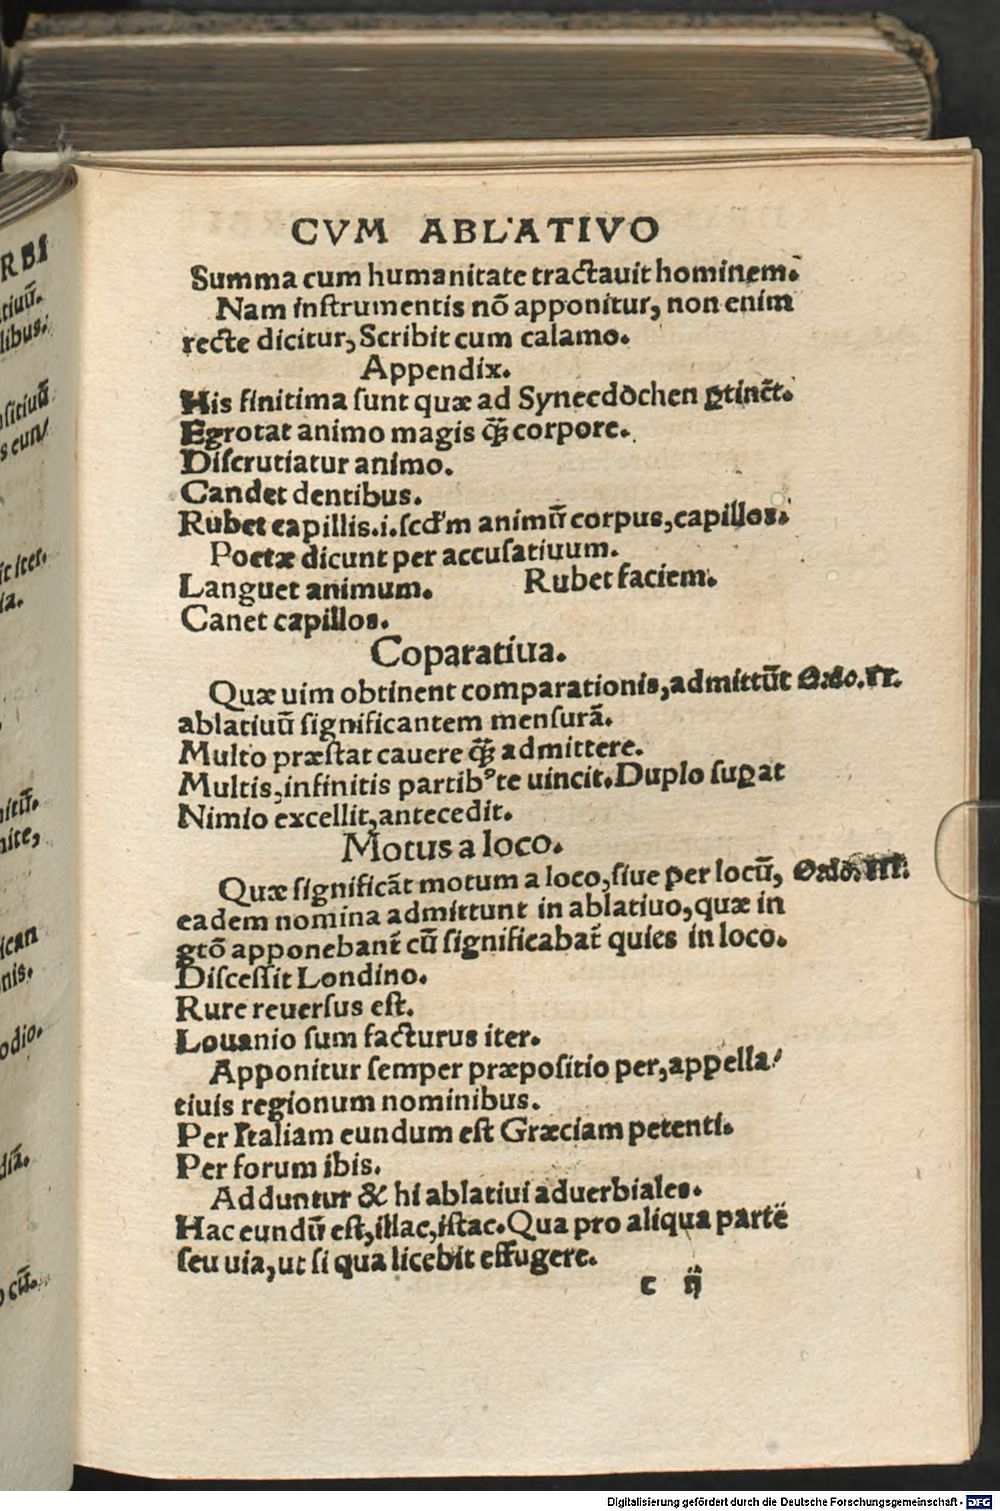 RBI
tiuū.
libus.
s eun/
it iter.
ia.
nite,
ican
nis.
odio.
CVM ABLATIVO
Summa cum humanitate tractauit hominem.
Nam instrumentis nō apponitur, non enim
recte dicitur, Scribit cum calamo.
Appendix.
His finitima sunt quæ ad Synecdòchen ꝑtinēt.
Egrotat animo magis ꝙ̃ corpore.
Discrutiatur animo.
Candet dentibus.
Rubet capillis.i.scd'm animū corpus,capillos.
Poetæ dicunt per accusatiuum.
Languet animum. Rubet faciem.
Canet capillos.
Coparatiua.
Quæ uim obtinent comparationis,admittūt Ordo.II.
ablatiuū significantem mensurā.
Multo præstat cauere ꝙ̃ admittere.
Multis,infinitis partibꝰ te uincit.Duplo suꝑat
Nimio excellit,antecedit.
Motus a loco.
Quæ significāt motum a loco,siue per locū, Ordo.III.
eadem nomina admittunt in ablatiuo,quæ in
gtō apponebant̄ cū significabat̄ quies in loco.
Discessit Londino.
Rure reuersus est.
Louanio sum facturus iter.
Apponitur semper præpositio per,appella/
tiuis regionum nominibus.
Per Italiam eundum est Græciam petenti.
Per forum ibis.
Adduntur & hi ablatiui aduerbiales.
Hac eundū est,illac,istac.Qua pro aliqua partē
seu uia,ut si qua licebit effugere.
c ij
Digitalisierung gefördert durch die Deutsche Forschungsgemeinschaft - DFG